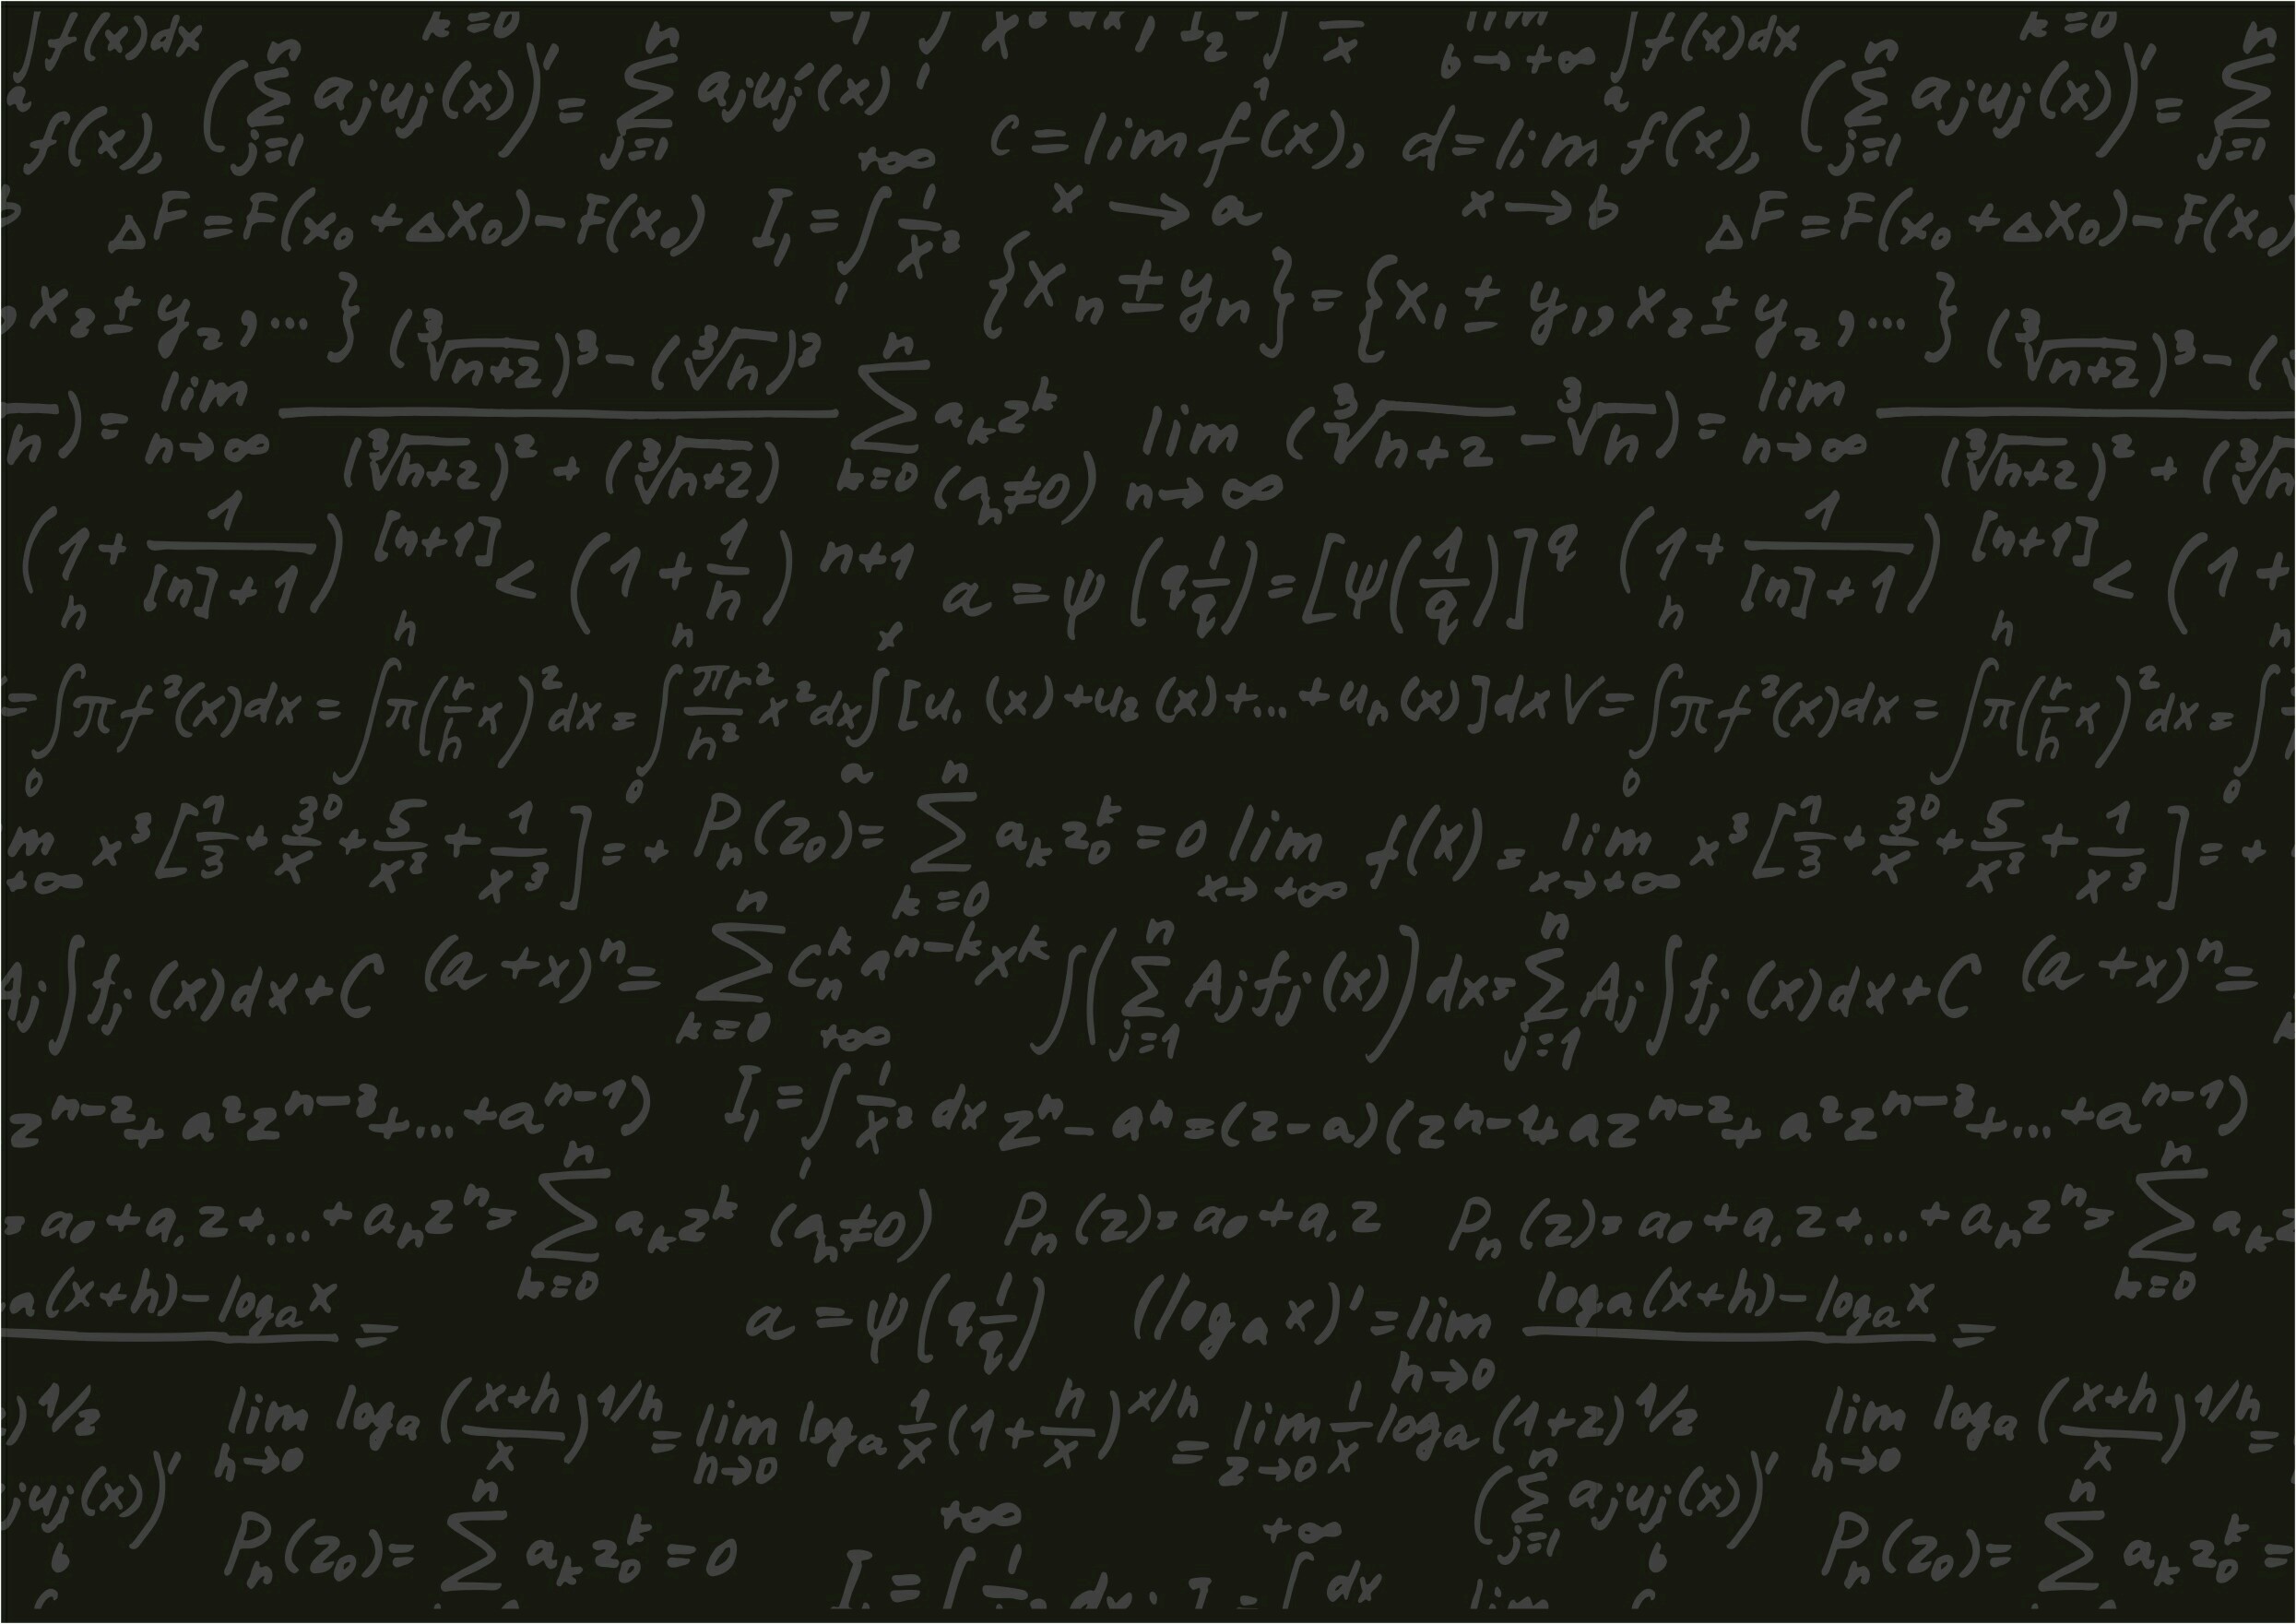 ∫f(x)dx k=0 lim b→+∞ ∫f(x)dx k=0
a f(x), (∑ⁿⱼ₌₁ ajuj(x))' = ∑ⁿⱼ₌₁ ajuj'(x) c=lim f(x), d=lim f(x), (∑ⁿⱼ₌₁ ajuj(x))' = ∑ⁿⱼ₌₁
x→a x→b
ΔF=F(x₀+Δx₀)-F(x₀) I₁=∫₁^+∞ 1/x² ΔF=F(x₀+Δx₀)-F(x₀)
x₂±y₂,...} {xn±yn}={x₁±y₁,x₂±y₂,...}
n)=lim n→∞ ((∛n+2)³-(∛n)³)/((∛n+2)²+(∛n+2)) ∑ⁿk=0 akz^k (an≠0) lim n→∞ (∛n+2-∛n)=lim n→∞ ((∛n+2)³-(
(1+1/([n]+1))^[n+1] < (1+1/n)^n+1 a=ψ(q1/q)=[ψ(1/q)]^q (1+1/([n]+1))^[n+1] < (1+
=∫₀^h πf²(x)dx=∫^h π(r/h x)²dx=∫₀^h πr²/h² x²dx ∫ₐ^x [u₁(x)+u₂(x)+...+un(x)]dx V=∫₀^h πf²(x)dx=∫^h π(r/h x)²dx=∫₀^h
m +∞ x³[1/3+30/x+5/x²+1/x³]=+ Pn(z₀)=∑ⁿk=0 akz₀^k=0 lim x→+∞ f(x)=lim x→+∞ x³[1/3+30/x+5/x²+1/x³]=+
Aj∫fj(x)dx+C (a+x)ⁿ=∑ⁿk=0 Cn^k a^n-k x^k ∫(∑ⁿj=1 Ajfj(x))dx=∑ⁿj=1 Aj∫fj(x)dx+C (a+x)ⁿ=
z^n-2+a²z^n-3+...+a^n-1) I₁=∫₁^+∞ 1/x² dx zⁿ-aⁿ=(z-a)(z^n-1+az^n-2+a²z^n-3+...+a^n-1)
=a₀+a₁z+...+anzⁿ=∑ⁿk=0 akz^k (an≠0) Pn(z)=a₀+a₁z Pn(z)=a₀+a₁z+...+anzⁿ=∑ⁿk=0 akz
a(x+h)-logax = a=ψ(q1/q) (logax)'=lim h→0 (loga(x+h)-logax)/ =
)^1/z lim h→0 loga((x+h)/x)^1/h=lim h→0 loga1/x(1+h/x)^x/h=lim z→0 1/x loga(1+z)^1/z lim h→0 loga((x+h)/x)^1/h=
juj(x))' (∑ⁿj=1 ajuj(x))'
b Pn(z₀)=∑ⁿ akz₀^k=0 I=∫^+∞ 1 ∫^+∞ dx lim b Pn(z₀)=∑ⁿ akz₀^k=